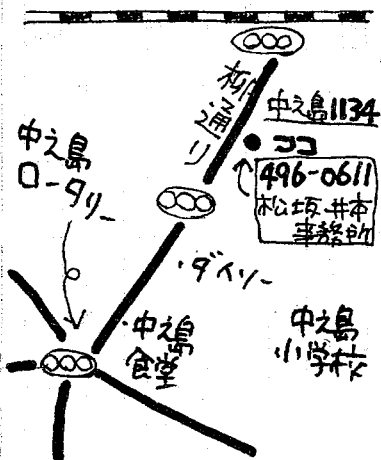 柳通り
中之島1134
ココ
496-0611
松坂・井本
事務所
中之島
ロータリー
・ダイソー
・中之島
食堂
中之島
小学校